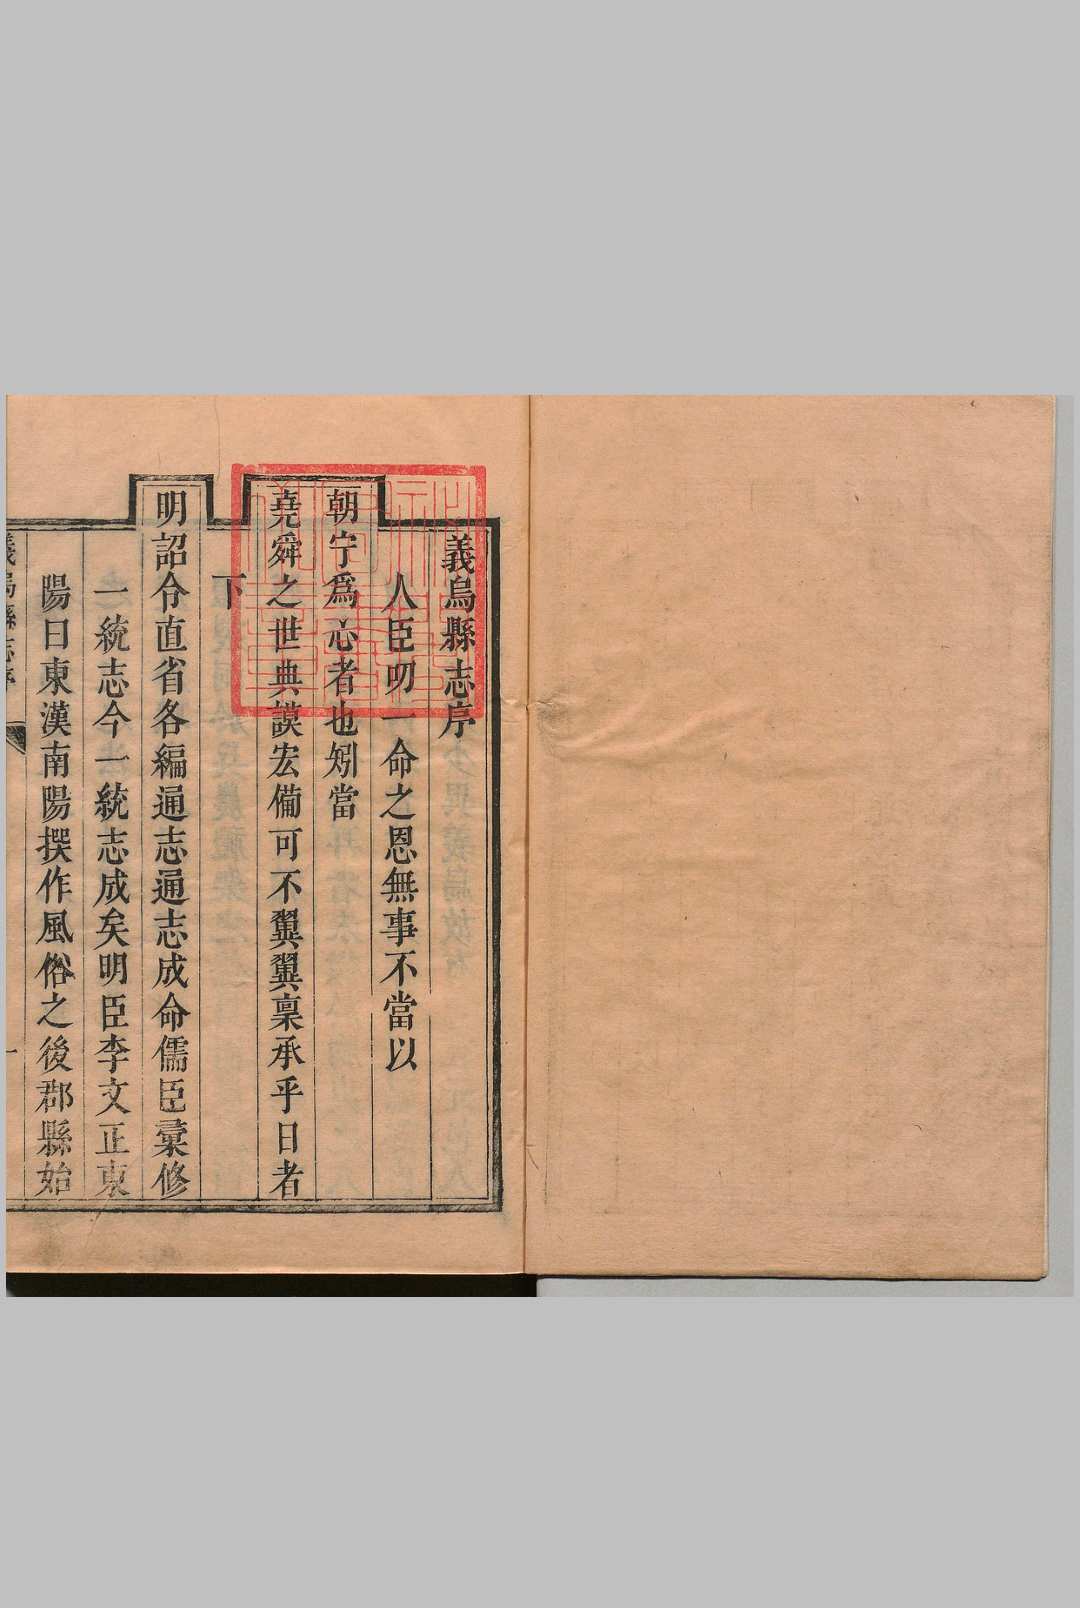 義烏縣志序
人臣叨一命之恩無事不當以
朝宁爲心者也矧當
堯舜之世典謨宏備可不翼翼稟承乎日者
下
明詔令直省各編通志通志成命儒臣彙修
一統志今一統志成矣明臣李文正東
陽曰東漢南陽撰作風俗之後郡縣始
義烏縣志序
一